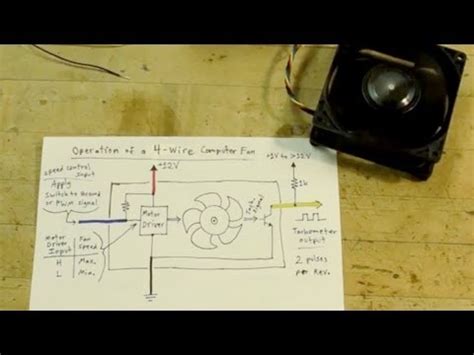 Operation of a 4-Wire Computer Fan
Speed Control
Input
Apply
Switch to Ground
or PWM signal
+12V
+5V to >12V
1k
Motor
Driver
Tach
Signal
Tachometer
output
2 pulses
per Rev.
Motor
Driver
Input
Fan
Speed
H Max.
L Min.